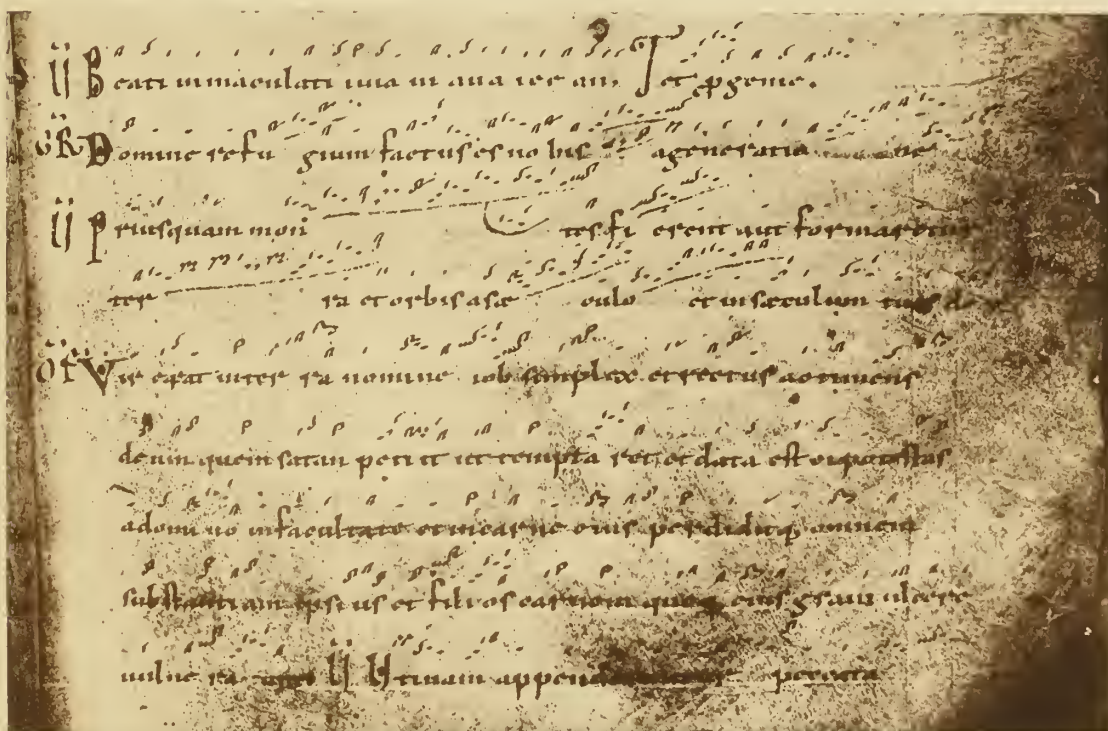 II Beati inmaculati in uia in aua ler an. I et ꝑgenie.
GR Domine refu gium factus es no bis ageneratio ne
II Priusquam mon tes fi erent aut formaretur
ter ra et orbis asæ culo et insæculum tu es
OF Vir erat in ter ra nomine iob simplex et rectus actimens
deum quem satan petit ut tempta ret et data est ei potestas
adomi no infacultate et incarne eius perdiditq; omnem
substantiam ipsi us et filios carnem quoq; eius graui ulcere
uulne ra II Utinam appen peccata